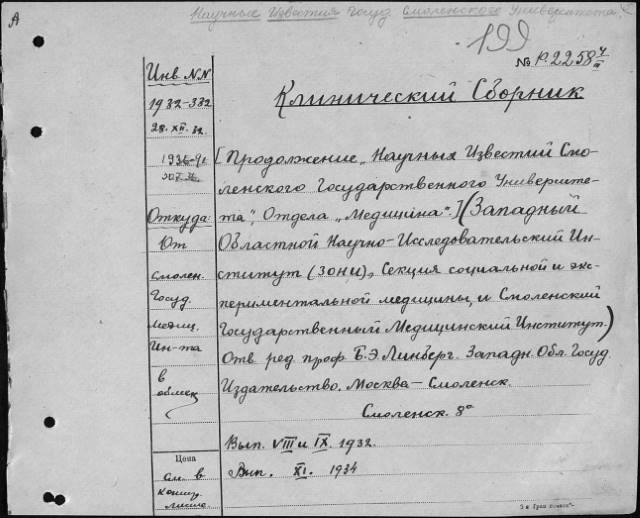 А
Научные Известия Госуд Смоленского Университета.
199
№ р. 2258 4/а
Инв N.N
1932-332
28. XII. 32.
1936-91
Откуда
От
Смолен.
Госуд.
Медиц.
Ин-та
в
обмен
Цена
См. в
Клинический Сборник
[Продолжение „Научных Известий Смо-
ленского Государственного Университе-
та", Отдела „Медицiна".] (Западный
Областной Научно-Исследовательский Ин-
ститут (ЗОНИ), Секция социальной и экс-
периментальной медицины, и Смоленский
Государственный Медицинский Институт.)
Отв ред проф Б.Э Линберг. Западн. Обл. Госуд.
Издательство. Москва—Смоленск.
Смоленск. 8°
Вып. VIII и IX. 1932.
Вип. XI. 1934